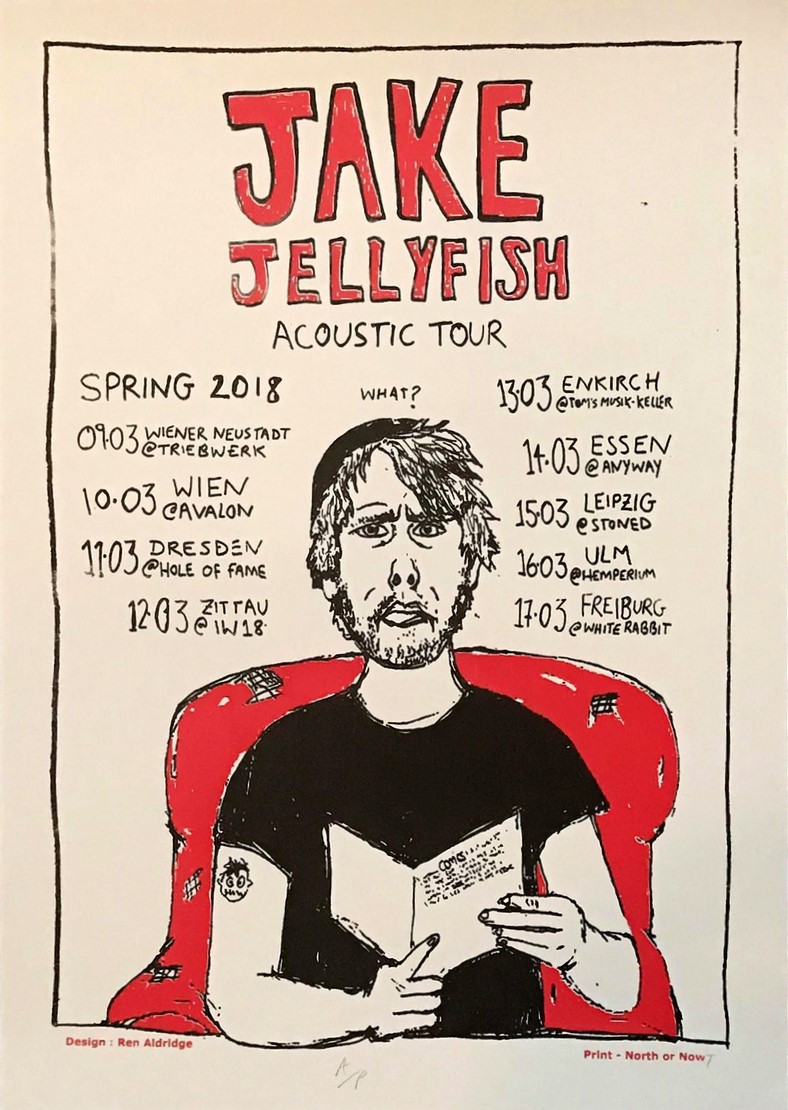 JAKE
JELLYFISH
ACOUSTIC TOUR
SPRING 2018
09.03 WIENER NEUSTADT
@TRIEBWERK
10.03 WIEN
@AVALON
11.03 DRESDEN
@HOLE OF FAME
12.03 ZITTAU
@ IW18
WHAT?
13.03 ENKIRCH
@TOM'S MUSIK-KELLER
14.03 ESSEN
@ANYWAY
15.03 LEIPZIG
@STONED
16.03 ULM
@HEMPERIUM
17.03 FREIBURG
@WHITE RABBIT
COMIS
Design : Ren Aldridge
Print - North or Nowt
A/P